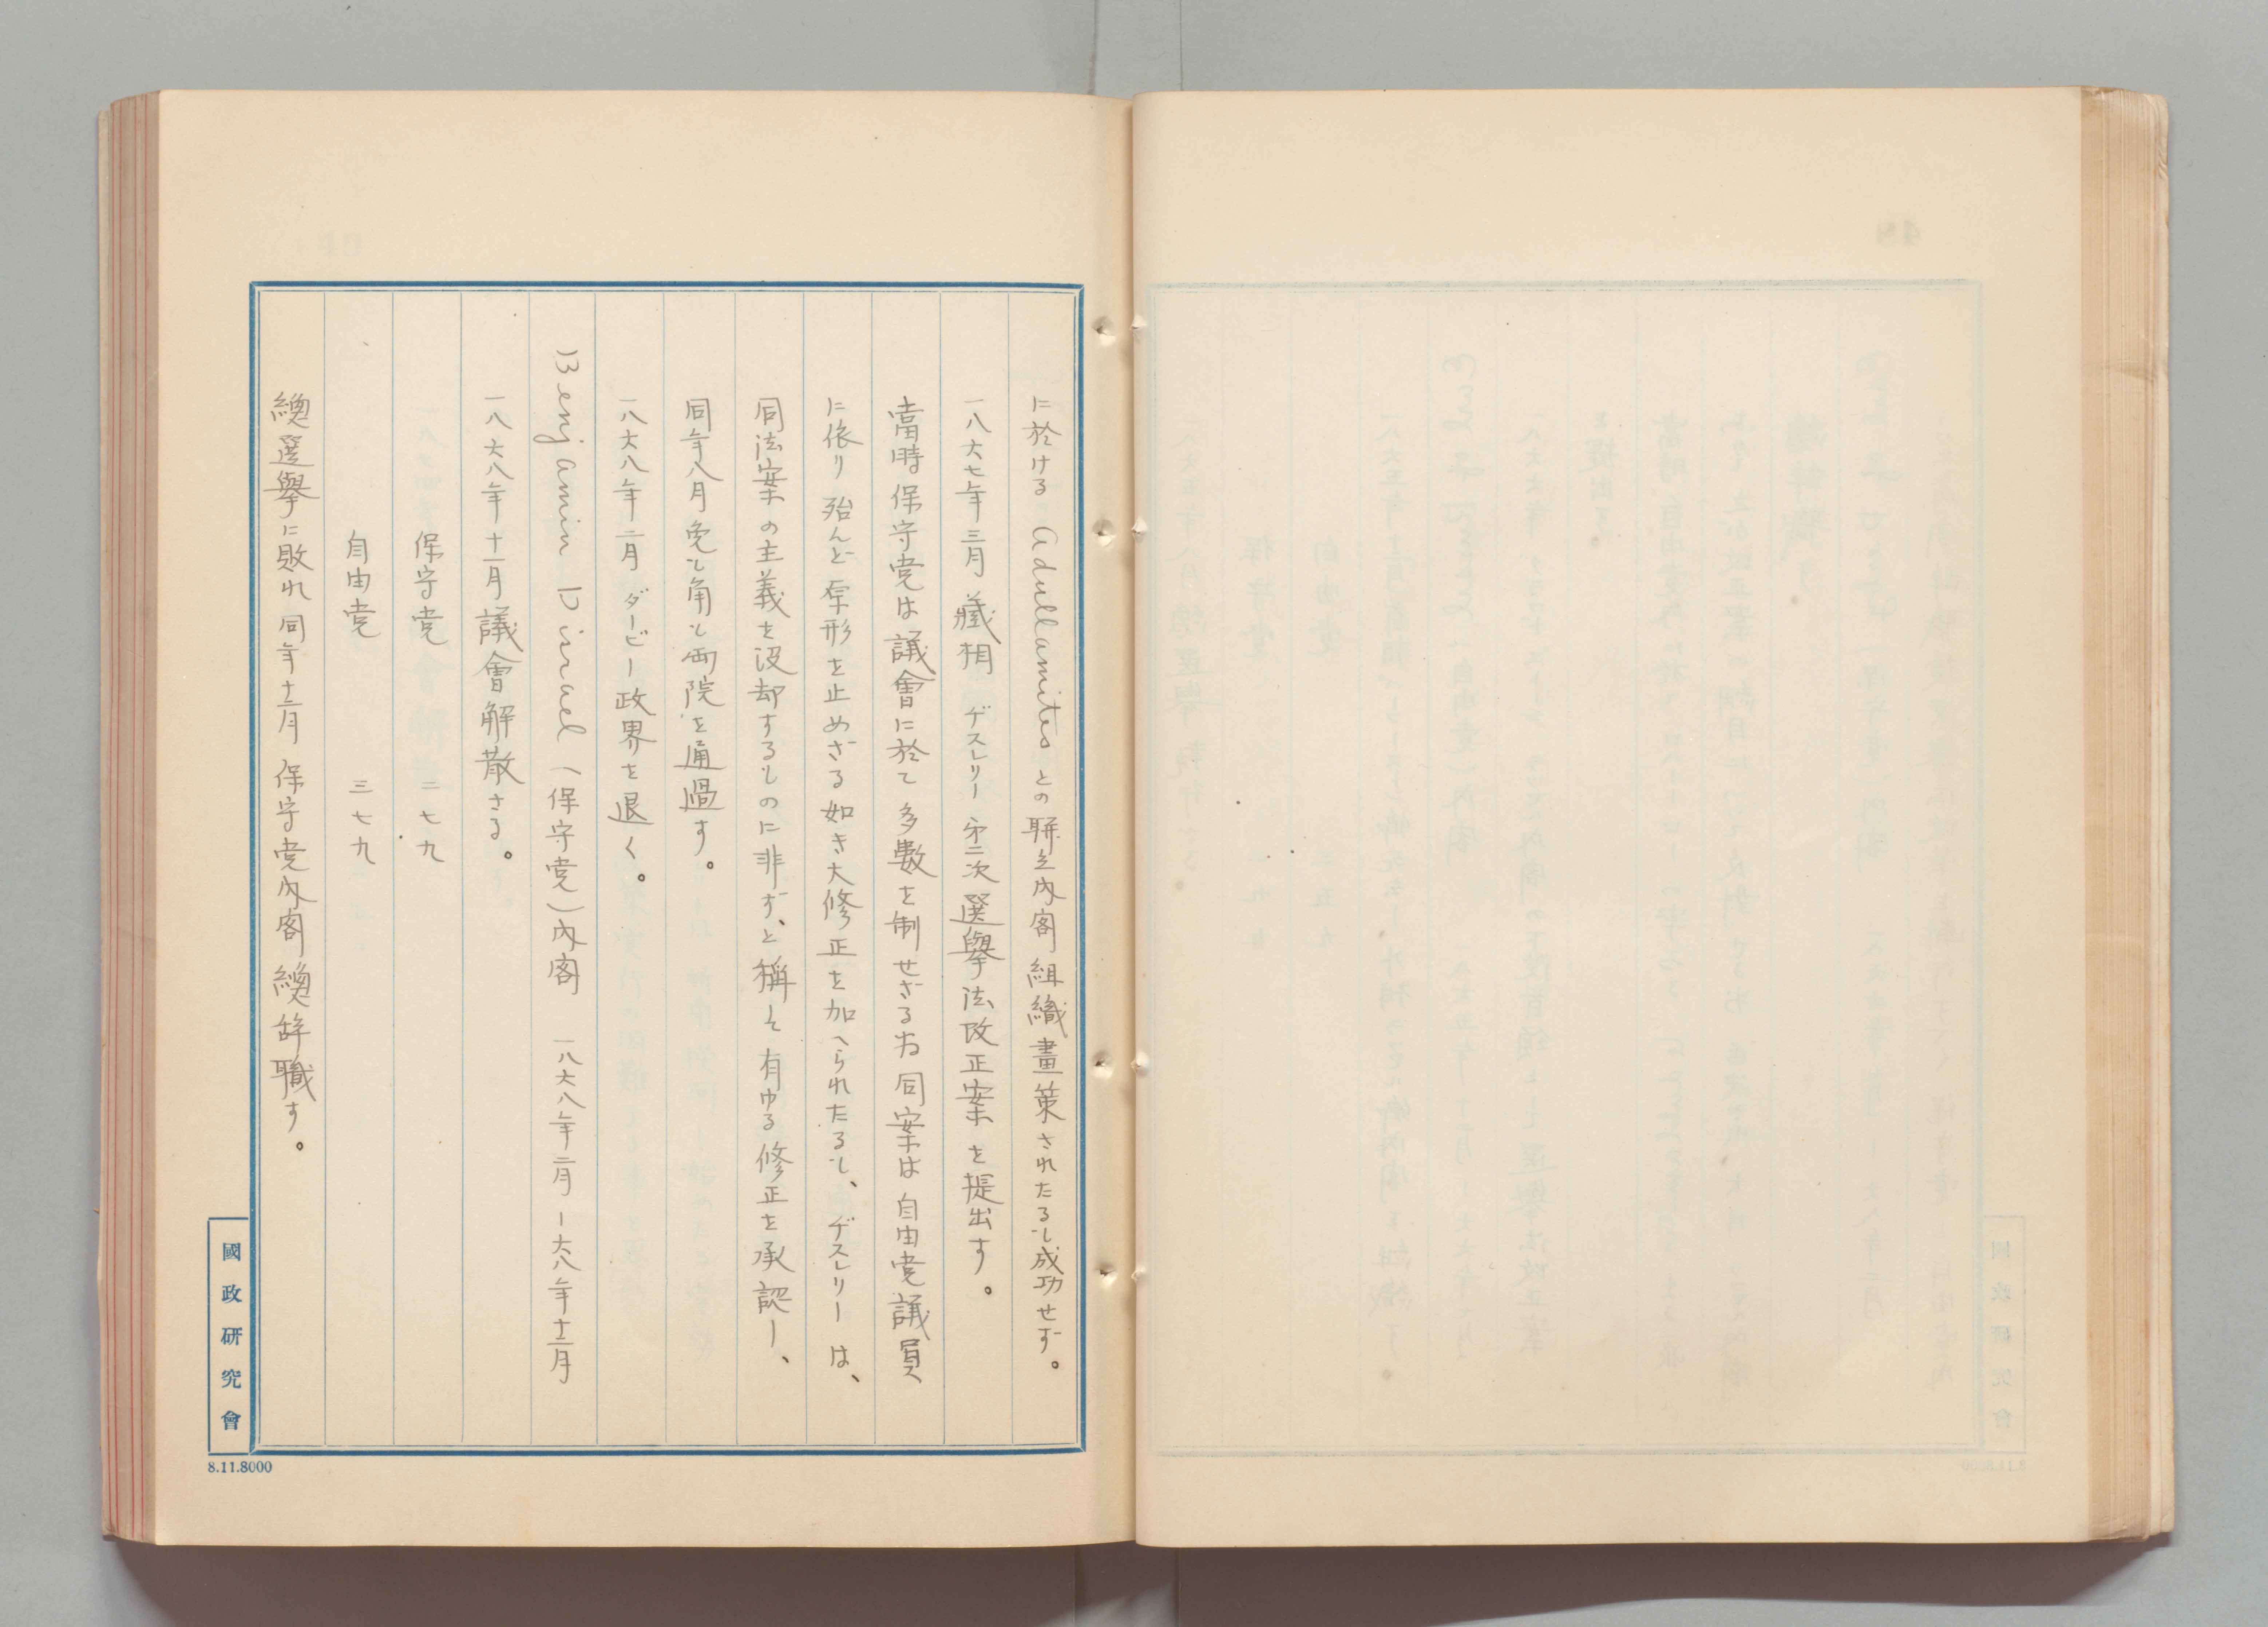 に於ける Adullamites との聯立内閣組織畫策されたるも成功せず。
一八六七年三月 藏相 ヂスレリー 第二次選擧法改正案を提出す。
當時保守党は議會に於て多數を制せざる為同案は自由党議員
に依り殆んど原形を止めざる如き大修正を加へられたるも、ヂスレリーは、
同法案の主義を没却するものに非ず、と稱して有ゆる修正を承認し、
同年八月兎も角も両院を通過す。
一八六八年二月 ダービー政界を退く。
Benjamin Disrael (保守党)内閣 一八六八年二月 - 六八年十二月
一八六八年十一月議會解散さる。
保守党 二七九
自由党 三七九
總選擧に敗れ同年十二月 保守党内閣總辞職す。
國政研究會
8.11.8000